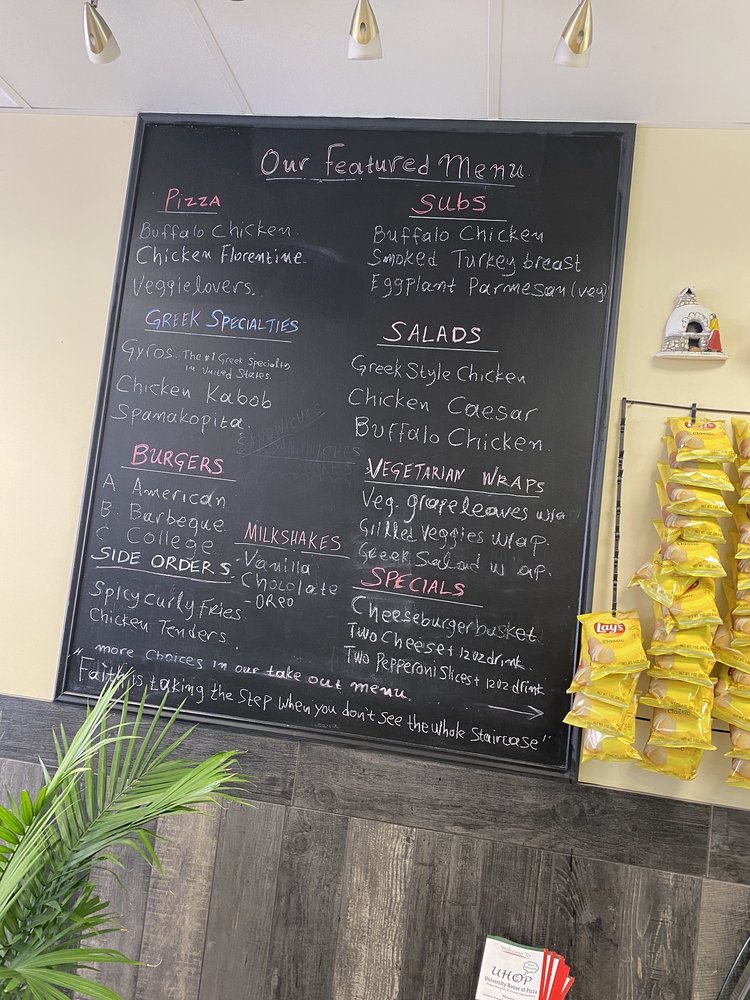 Our Featured Menu
Pizza
Buffalo Chicken
Chicken Florentine
Veggielovers
Greek Specialties
Gyros. The #1 Greek Specialty
in United States.
Chicken Kabob
Spanakopita
SANDWICHES
SANDWICHES
Burgers
A American
B. Barbeque
C College
Side Orders
Spicy Curly Fries
Chicken Tenders
Milkshakes
-Vanilla
-Chocolate
-Oreo
Subs
Buffalo Chicken
Smoked Turkey breast
Eggplant Parmesan (veg)
Salads
Greek Style Chicken
Chicken Caesar
Buffalo Chicken
Vegetarian Wraps
Veg. grapeleaves wrap
Grilled Veggies wrap.
Greek Salad wrap.
Specials
Cheeseburger basket
Two Cheese + 12oz drink
Two Pepperoni Slices + 12oz drink
more choices in our take out menu
"Faith is taking the Step when you don't see the whole Staircase"
Lay's
Classic
Classic
Classic
Classic
UHOP
University House of Pizza